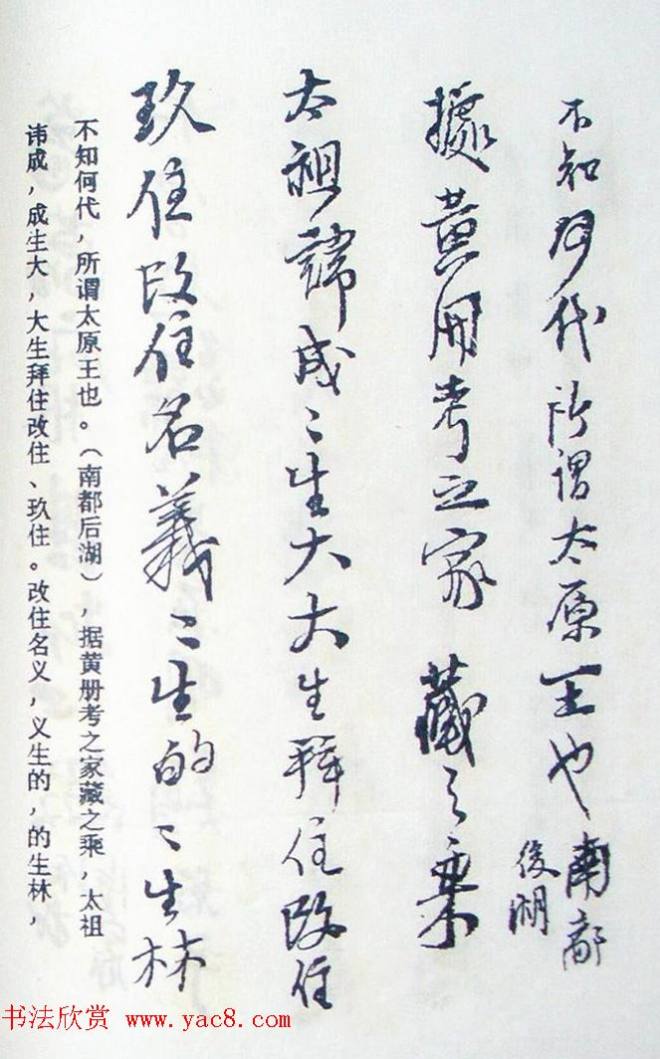 不知何代所謂太原王也南都
後湖
據黄册考之家藏之乗
太祖諱成〻生大大生拜住改住
玖住改住名義〻生的〻生林
不知何代，所谓太原王也。（南都后湖），据黄册考之家藏之乘，太祖
讳成，成生大，大生拜住改住、玖住。改住名义，义生的，的生林，
书法欣赏 www.yac8.com